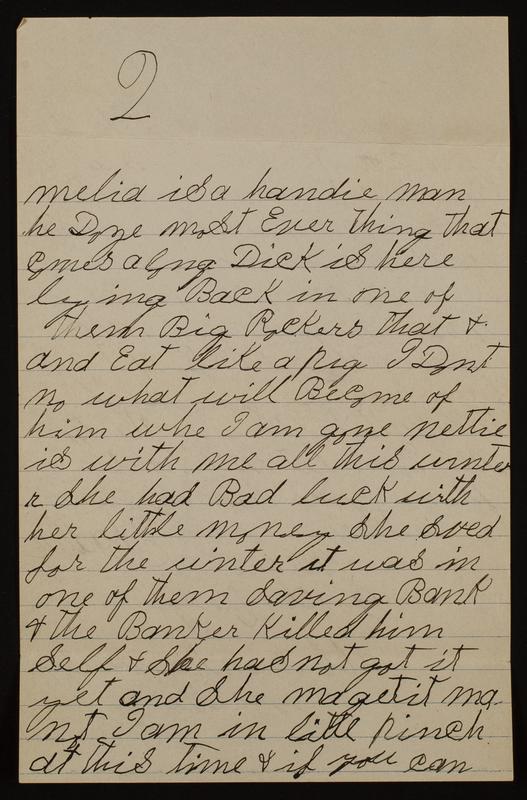 2
melia is a handie man
he Doze most Ever thing that
comes along Dick is here
lying Back in one of
them Big Rockers that &
and Eat like a pig I Dont
no what will Become of
him whe I am gone nettie
is with me all this winte
r She had Bad luck with
her little money She Sved
for the winter it was in
one of them Saving Bank
& the Banker Killed him
Self & She has not got it
yet and She ma get it ma
not I am in little pinch
at this time & if you can